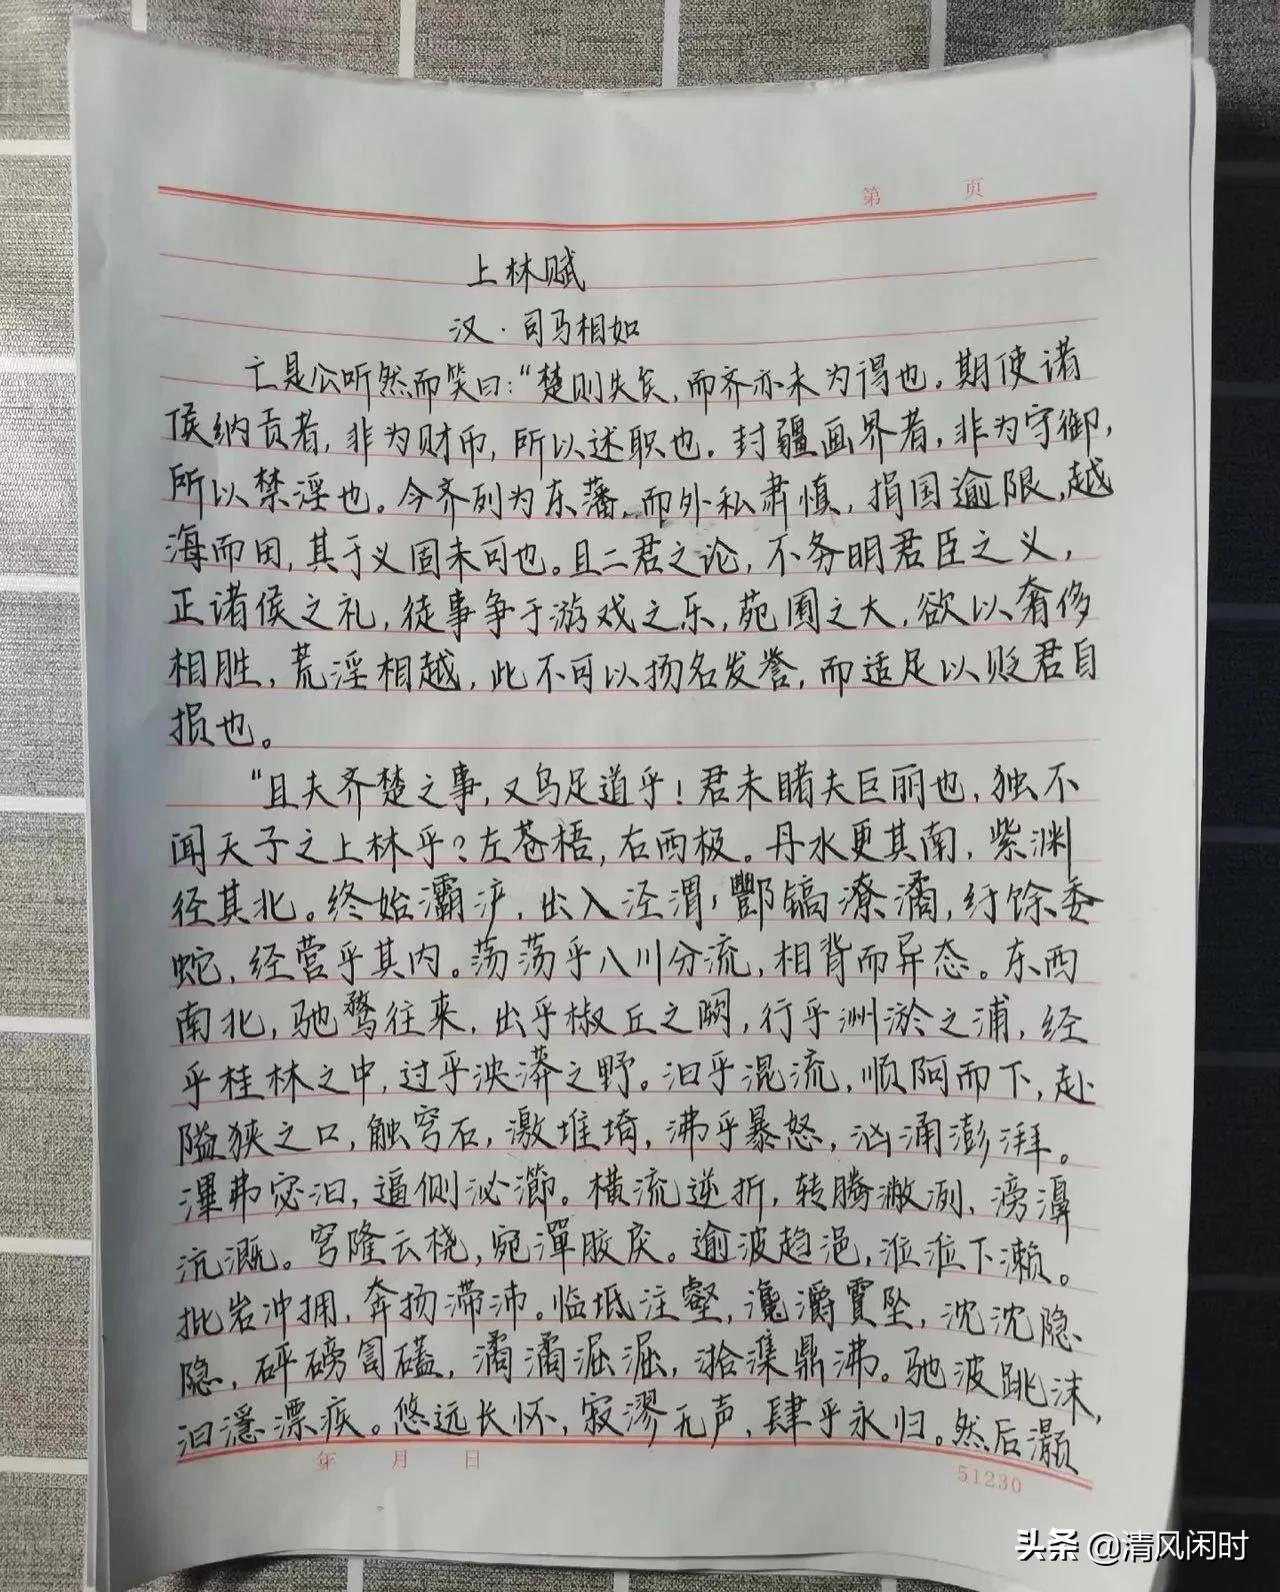 第 页
上林赋
汉·司马相如
亡是公听然而笑曰:“楚则失矣,而齐亦未为得也。期使诸
侯纳贡者,非为财币,所以述职也。封疆画界者,非为守御,
所以禁淫也。今齐列为东藩,而外私肃慎,捐国逾限,越
海而田,其于义固未可也。且二君之论,不务明君臣之义,
正诸侯之礼,徒事争于游戏之乐,苑囿之大,欲以奢侈
相胜,荒淫相越,此不可以扬名发誉,而适足以贬君自
损也。
“且夫齐楚之事,又乌足道乎!君未睹夫巨丽也,独不
闻天子之上林乎?左苍梧,右西极。丹水更其南,紫渊
径其北。终始灞浐,出入泾渭,酆镐潦潏,纡馀委
蛇,经营乎其内。荡荡乎八川分流,相背而异态。东西
南北,驰骛往来,出乎椒丘之阙,行乎洲淤之浦,经
乎桂林之中,过乎泱漭之野。汩乎混流,顺阿而下,赴
隘狭之口,触穹石,激堆埼,沸乎暴怒,汹涌澎湃。
滭弗宓汩,逼侧泌瀄。横流逆折,转腾潎洌,滂濞
沆溉。穹隆云桡,宛潬胶戾。逾波趋浥,涖涖下濑。
批岩冲拥,奔扬滞沛。临坻注壑,瀺灂霣坠,沈沈隐
隐,砰磅訇礚,潏潏淈淈,湁潗鼎沸。驰波跳沫,
汩㶏漂疾。悠远长怀,寂漻无声,肆乎永归。然后灏
年 月 日
51230
头条 @清风闲时